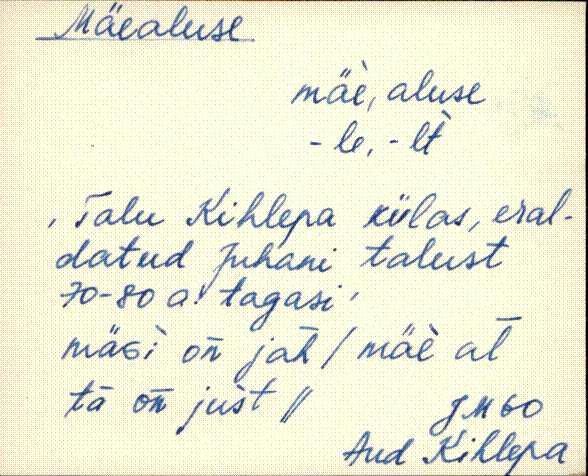 Mäealuse
mäè, aluse
-le, -lt̀
‚Talu Kihlepa külas, eral-
datud Juhani talust
70-80 a. tagasi'
mäǵi on̄ jah / mäè al̄
tā on̄ just //
JM60
Aud Kihlepa